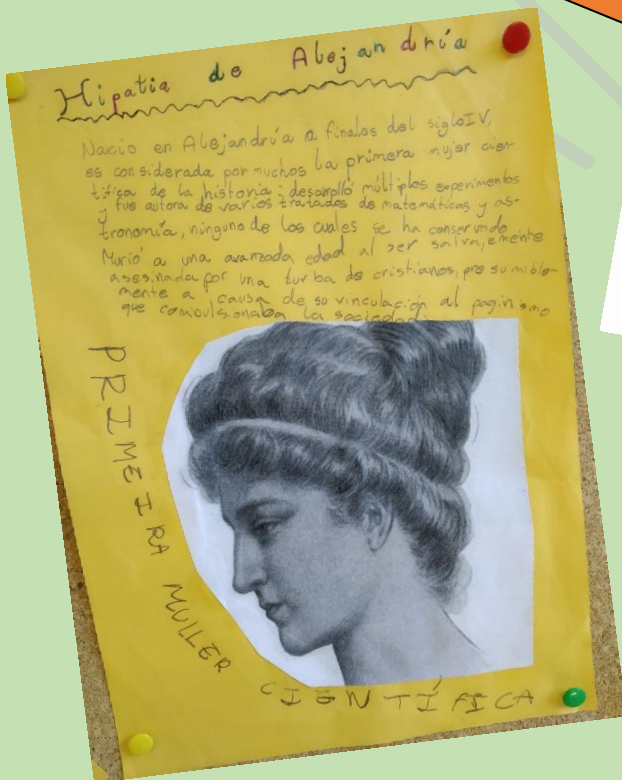 Hipatia de Alejandría
Nacio en Alejandría a finales del siglo IV,
es considerada por muchos la primera mujer cien-
tífica de la historia; desarrolló múltiples experimentos
y fue autora de varios tratados de matemáticas y as-
tronomía, ninguno de los cuales se ha conservado.
Murió a una avanzada edad al ser salvajemente
asesinada por una turba de cristianos, presumible-
mente a causa de su vinculación al paginismo
que convulsionaba la sociedad.
PRIMEIRA MULLER
CIENTÍFICA